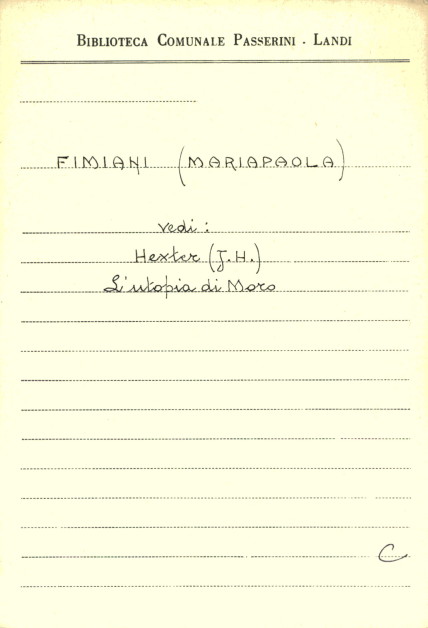 BIBLIOTECA COMUNALE PASSERINI - LANDI
FIMIANI (MARIAPAOLA)
vedi:
Hexter (J.H.)
L'utopia di Moro
C